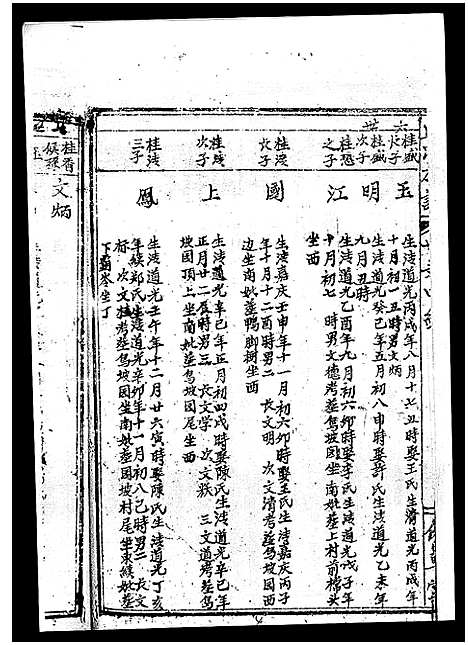 六世
桂盛長子
玉
生淸道光丙戌年八月十七丑時娶王氏生淸道光丙戌年
十月初一丑時男文炳
桂盛次子
明
生淸道光癸巳年五月初八申時娶許氏生淸道光乙未年
九月丑時
桂恩之子
江
生淸道光乙酉年九月初六卯時娶李氏生淸道光戊子年
十月初七 時男文德考葬鴛坡园坐南妣葬上村前橋头
坐西
桂淩長子
國
生淸嘉庆壬申年十一月初六卯時娶王氏生淸嘉庆丙子
年十月十二酉時男二 長文明 次文清考葬鴛坡园西
边坐南妣葬鴨脚樹坐西
桂淩次子
上
生淸道光辛巳年正月初四戌時娶陳氏生淸道光辛巳年
正月廿二辰時男三 長文学 次文族 三文道考葬鴛
坡园顶上坐南妣葬鴛坡园尾坐西
桂淩三子
鳳
生淸道光壬午年十二月廿六寅時娶陳氏生淸道光丁亥
年継鄭氏生淸道光辛卯年十一月初八己時男二 長文
标 次文桂考葬鴛坡园坐南妣葬园坡村尾坐東継妣葬
下 岑坐丁
桂香
文炳